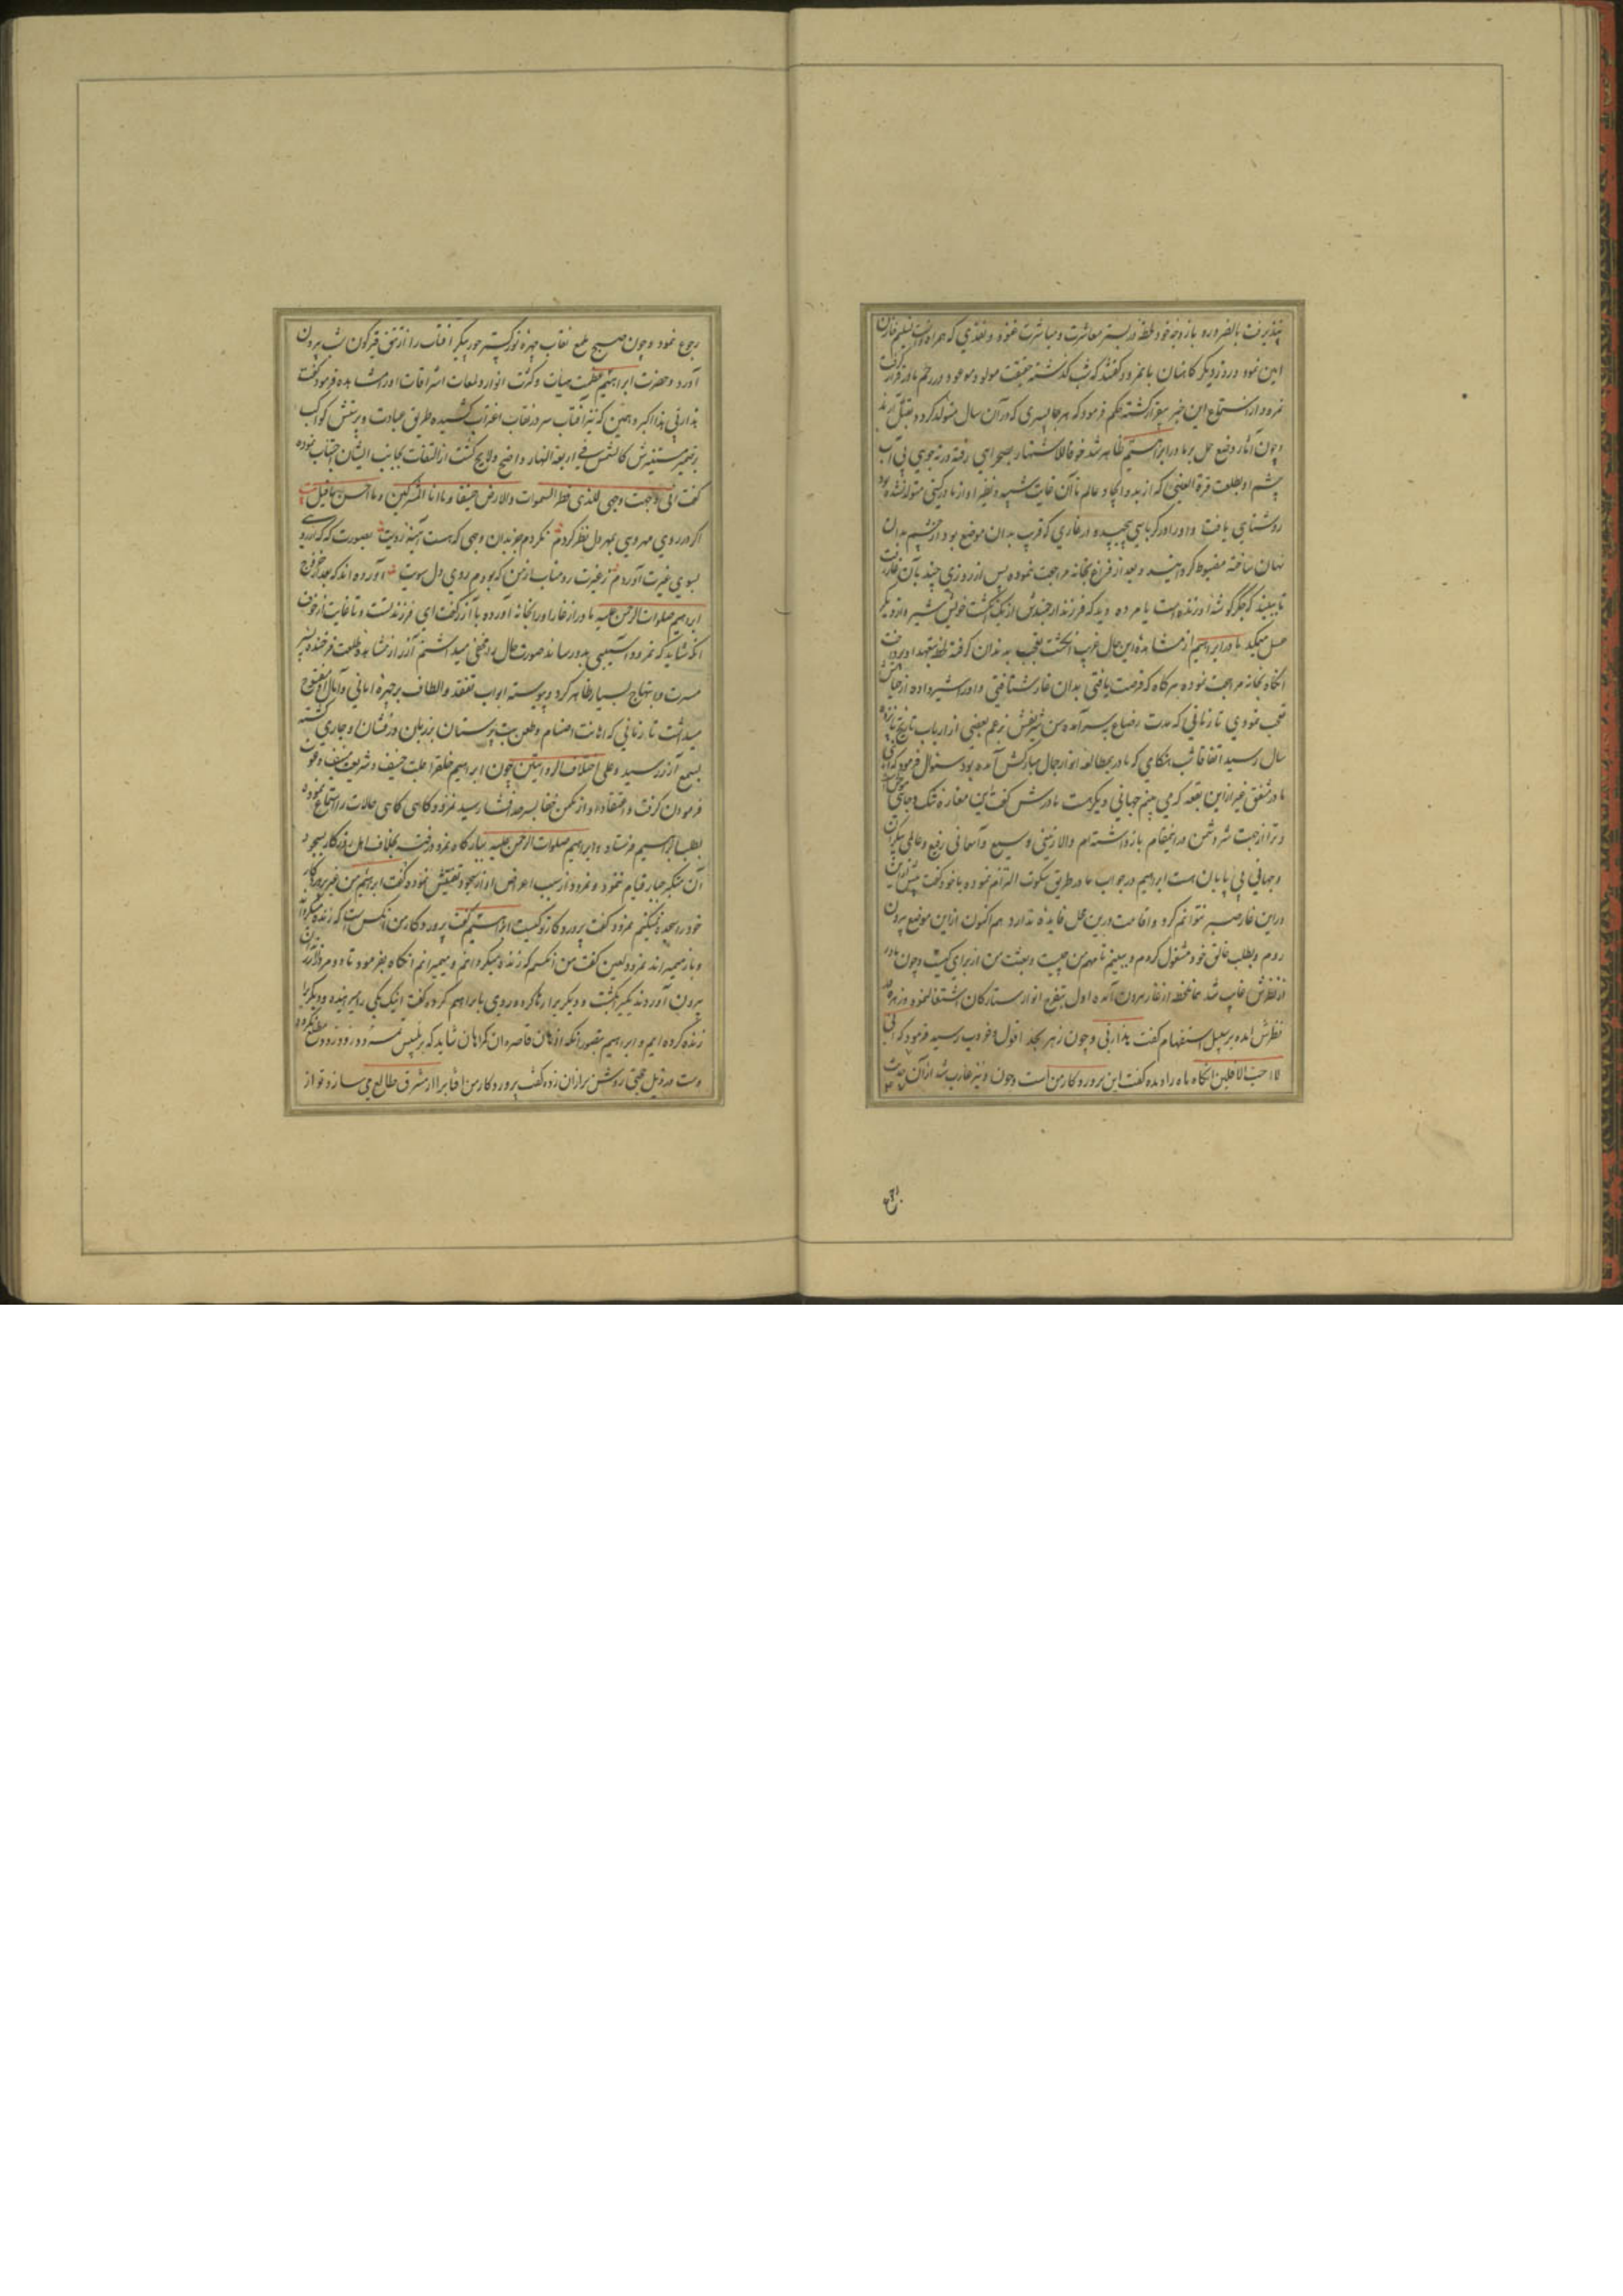 پذیرفت بالضروره با زوجه خود لحظه در بستر معاشرت و مباشرت غنوده و نقدی که همراه داشت تسلیم خازن
امین نمود و روز دیگر کاهنان با نمرود گفتند که شب گذشته حقیقت مولود موعود در رحم مادر قرار گرفت
نمرود از استماع این خبر بیقرار گشته حکم فرمود که هر جا پسری که در آن سال متولد گردد بقتل آرند
و چون آثار وضع حمل بر مادر ابراهیم ظاهر شد خوفا للاشتهار بصحرای رفته در ته جوی بی آب
چشم او بطلعت قرة العینی که از بدو ایجاد عالم تا آن غایت شبیه و نظیر او از مادر گیتی متولد نشده بود
روشنایی یافت و او را در کرباسی پیچیده در غاری که قریب بدان موضع بود از چشم بدان
نهان ساخته مضبوط گردانید و بعد از فراغ بخانه مراجعت نموده پس از روزی چند بآن غار رفت
تا ببیند که جگر گوشه او زنده است یا مرده دید که فرزند ارجمندش از یک انگشت خویش شیر و از دیگر
عسل میمکد مادر ابراهیم از مشاهده این حال غریب انگشت تعجب بدندان گرفته لحظه بتعهد او پرداخت
آنگاه بخانه مراجعت نموده هر گاه که فرصت یافتی بدان غار شتافتی و او را شیر داده از حالش
تعجب نمودی تا زمانی که مدت رضاع بسر آمده سن شریفش بزعم بعضی از ارباب تاریخ بپانزده
سال رسید اتفاقا شب هنگامی که مادر بمطالعه انوار جمال مبارکش آمده بود سئوال فرمود که ای
مادر مشفق غیر از این بقعه که می بینم جهانی دیگر هست مادرش گفت این مغاره تنک و جای موحش است
و ترا از جهت شر دشمن در اینمقام باز داشته ام والا زمینی وسیع و آسمانی رفیع و عالمی بیکران
و جهانی بی پایان هست ابراهیم در جواب مادر طریق سکوت التزام نموده با خود گفت پیش ازین
در این غار صبر نتوانم کرد و اقامت درین محل فایده ندارد هم اکنون از این موضع بیرون
روم و بطلب خالق خود مشغول گردم و ببینم تا مهم من چیست و بعثت من از برای کیست و چون مادر
از نظرش غایب شد همانلحظه از غار بیرون آمده اول بتفرج انوار ستارگان اشتغال نمود و زهره در
نظرش آمده بر سبیل استفهام گفت هذا ربی و چون زهره بحد افول و غروب رسید فرمود که انی
لا احب الافلین آنگاه ماه را دیده گفت این پروردگار من است و چون او نیز غارب شد از آن
رجوع نمود و چون صبح طلع نقاب چهره نور گستر حور پیکر آفتاب را از تتق قیرگون شب بیرون
آورد و حضرت ابراهیم عظمت هیأت و کثرت انوار و لمعات اشراقات او را مشاهده فرمود گفت
هذا ربی هذا اکبر و همین که نیز آفتاب سر در نقاب اغتراب کشیده طریق عبادت و پرستش کواکب
بر ضمیر مستنیرش کالشمس فی اربعة النهار واضح و لایح گشت از التفات بجانب ایشان اجتناب نموده
گفت انی وجهت وجهی للذی فطر السموات والارض حنیفا و ما انا من المشرکین و ما احسن ما قیل
اگر در روی مهرویی بمهر دل نظر کردم نکردم جز بدان وجهی که هست آیینه رویت بصورت گر که آرد
بسوی غیرت آوردم ز غیرت رو متاب از من که بودم روی دل سویت آورده اند که بعد از خروج
ابراهیم صلوات الرحمن علیه مادر از غار او را بخانه آورده با آزر گفت ای فرزند تست و تا غایت از خوف
آنکه شاید که نمرود آسیبی بدو رساند صورت حال را مخفی میداشتم آزر از مشاهده طلعت فرخنده پسر
مسرت و ابتهاج بسیار ظاهر کرد و پیوسته ابواب تفقد و الطاف بر چهره امانی و آمال او مفتوح
میداشت تا زمانی که اهانت اصنام و طعن بت پرستان بر زبان در فشان او جاری گشته
بسمع آزر رسید و علی اختلاف الروایتین چون ابراهیم خلق را بملت حنیف و شریعت منیف دعوت
فرمودن گرفت و اعتقاد او از مکمن خفا بسر حد افشا رسید نمرود گاهی گاهی حالات را استماع نموده
بطلب ابراهیم فرستاد و ابراهیم صلوات الرحمن علیه ببارگاه نمرود رفت و بخلاف اهل روزگار بسجود
آن متکبر جبار قیام ننمود و نمرود از سبب اعراض او از سجود تفتیش نموده گفت ابراهیم من غیر پروردگار
خود را سجده نمیکنم نمرود گفت پروردگار تو کیست ابراهیم گفت پروردگار من آنکس است که زنده میگرداند
و باز میمیراند نمرود لعین گفت من آنکسم که زنده میگردانم و میمیرانم آنگاه بفرمود تا دو مرد از زندان
بیرون آوردند یکی را کشت و دیگری را رها کرده روی بابراهیم کرده گفت اینک یکی را میرانیده و دیگری را
زنده کرده ایم و ابراهیم بتصور آنکه اذهان قاصره ان گمراهان شاید که بر تلبیس نمرود مردود مطلع نگردد
دست در ذیل حجتی روشن تر از آن زده گفت پروردگار من آفتاب را از مشرق طالع می سازد تو از